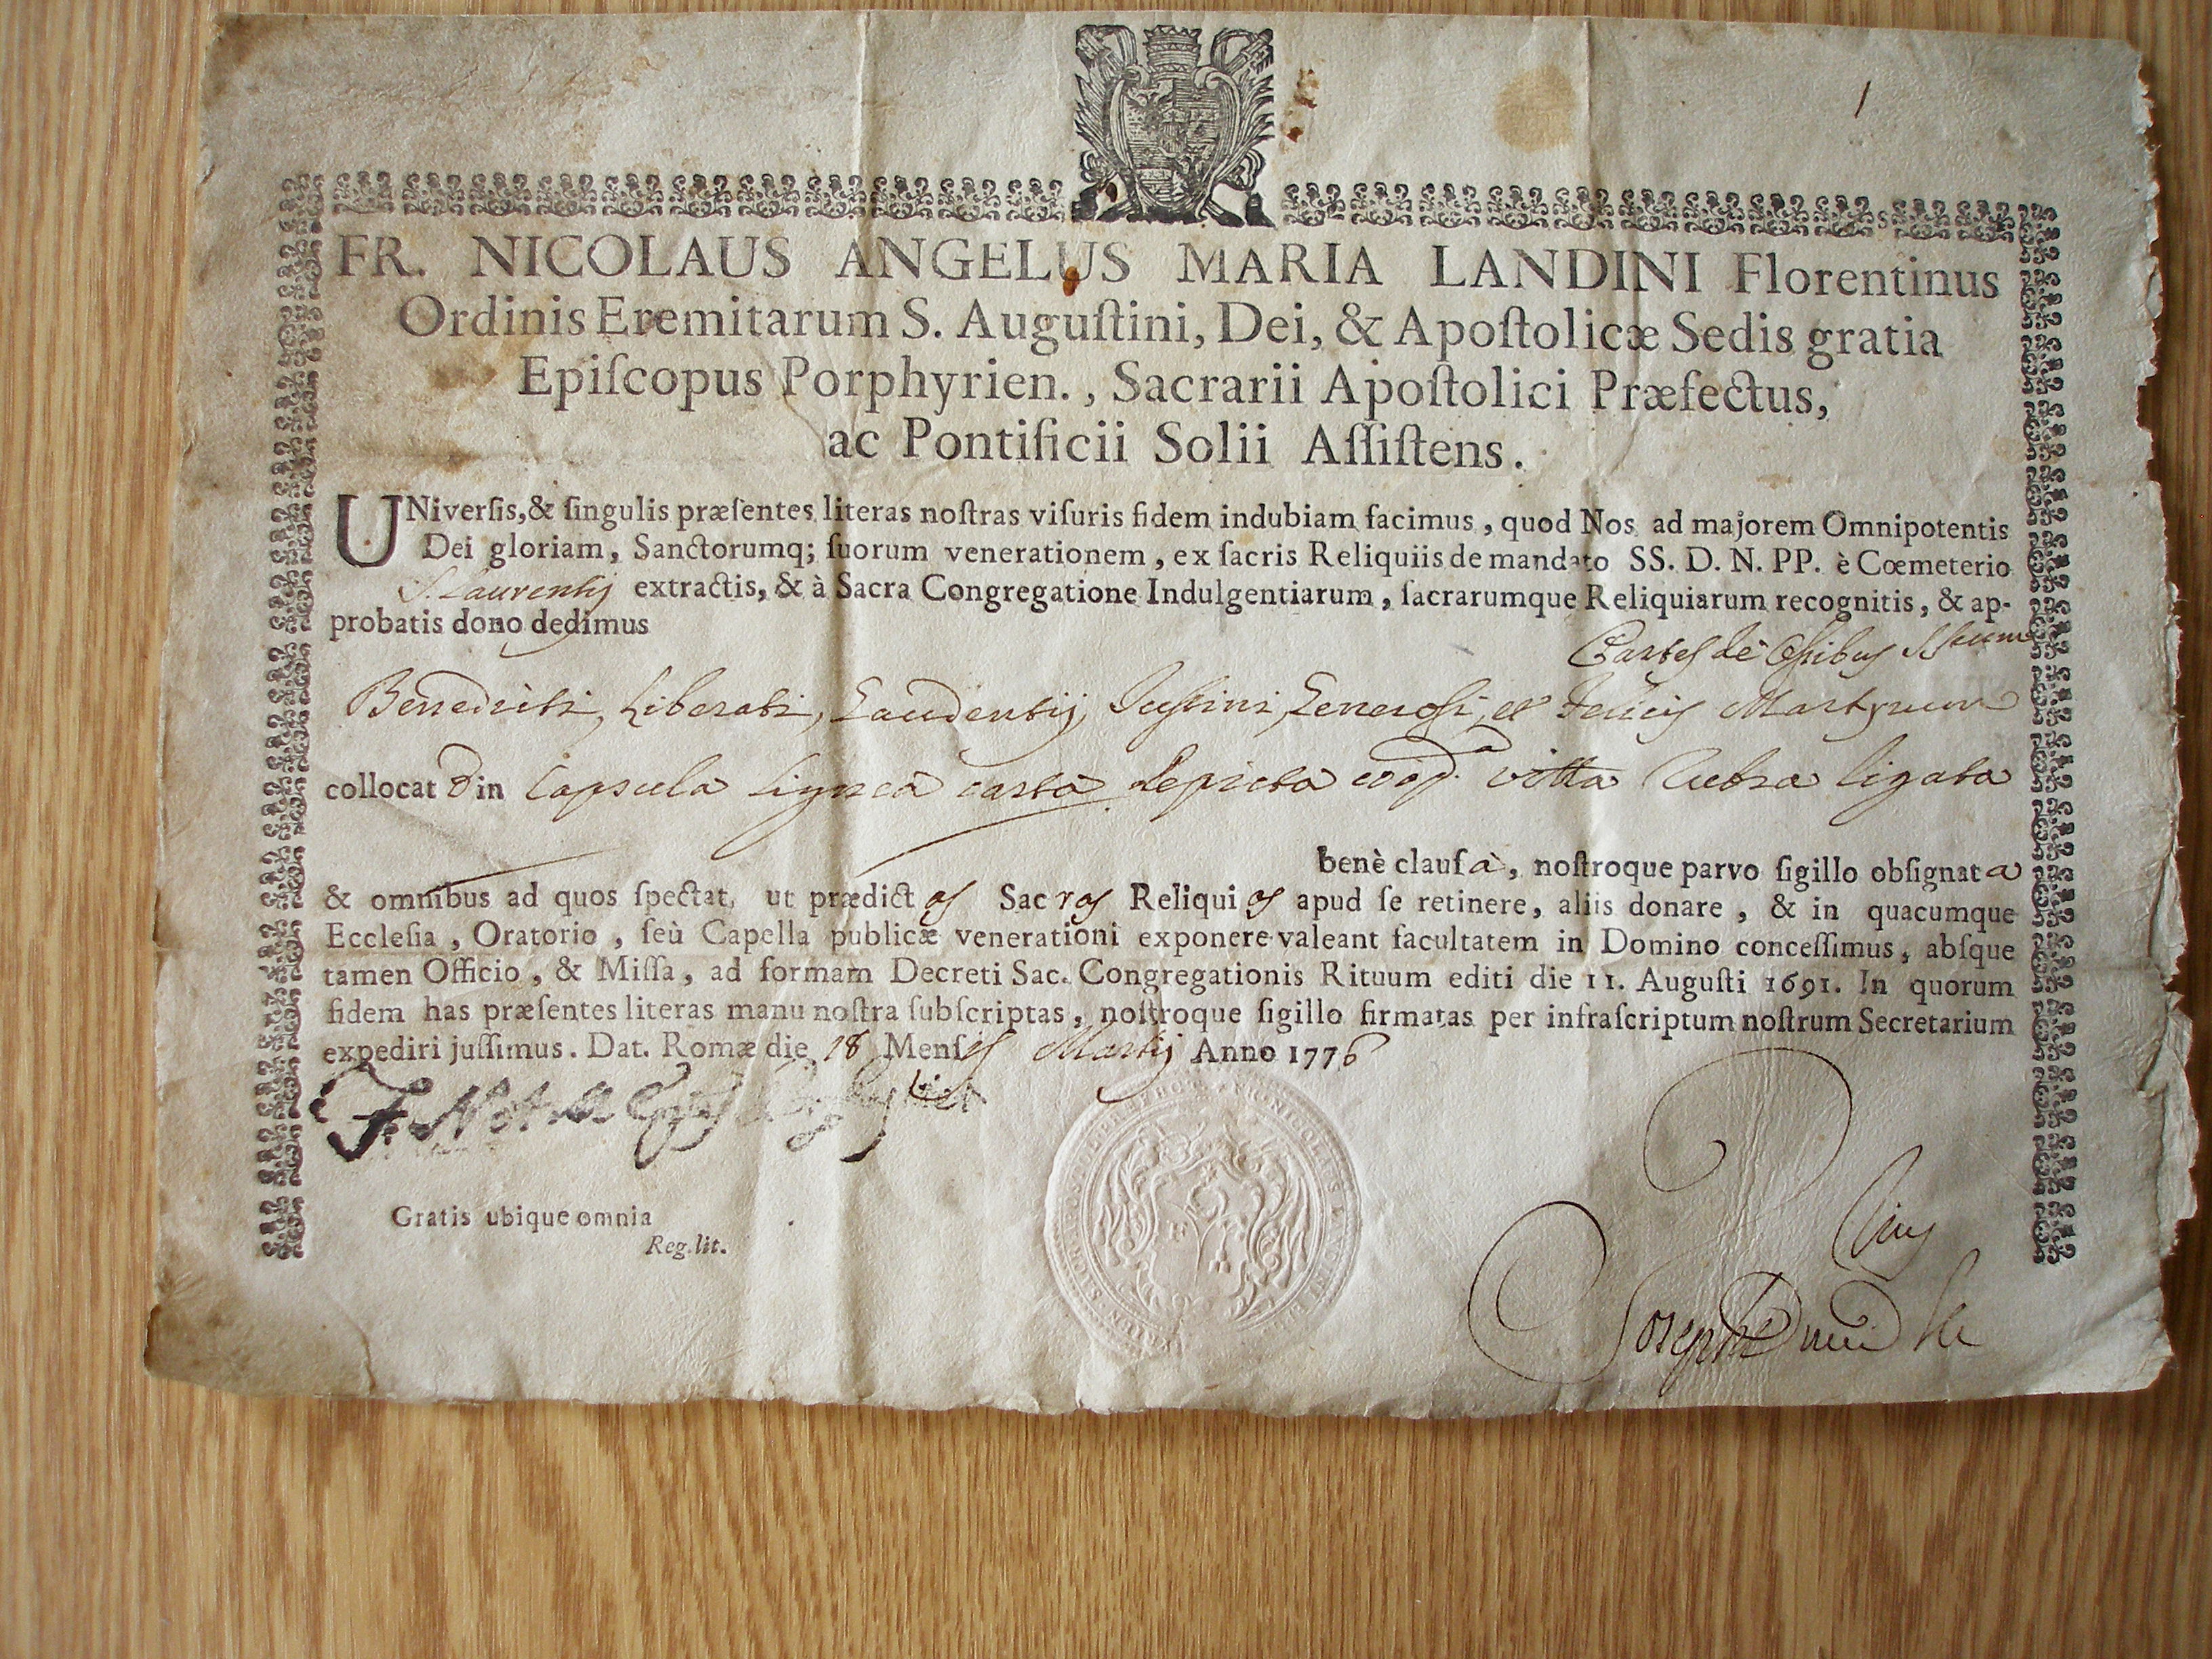 FR. NICOLAUS ANGELUS MARIA LANDINI Florentinus
Ordinis Eremitarum S. Auguſtini, Dei, & Apoſtolicæ Sedis gratia
Epiſcopus Porphyrien., Sacrarii Apoſtolici Præfectus,
ac Pontificii Solii Aſſiſtens.
UNiverſis, & ſingulis præſentes literas noſtras viſuris fidem indubiam facimus, quod Nos ad majorem Omnipotentis
Dei gloriam, Sanctorumq; ſuorum venerationem, ex ſacris Reliquiis de mandato SS. D. N. PP. è Cœmeterio
S. Laurentij extractis, & à Sacra Congregatione Indulgentiarum, ſacrarumque Reliquiarum recognitis, & ap-
probatis dono dedimus
Partes de Oſsibus
Benedicti, Liberati, Gaudentij, Juſtini, Generoſi, et Felicis Martyrum
collocat in Capsula lignea carta depicta vitta rubra ligata
benè clauſa, noſtroque parvo ſigillo obſignata
& omnibus ad quos ſpectat, ut prædictas Sacras Reliquias apud ſe retinere, aliis donare, & in quacumque
Eccleſia, Oratorio, ſeù Capella publicæ venerationi exponere valeant facultatem in Domino conceſſimus, abſque
tamen Officio, & Miſſa, ad formam Decreti Sac. Congregationis Rituum editi die 11. Auguſti 1691. In quorum
fidem has præſentes literas manu noſtra ſubſcriptas, noſtroque ſigillo firmatas per infraſcriptum noſtrum Secretarium
expediri juſſimus. Dat. Romæ die 18 Menſis Martij Anno 1776
Gratis ubique omnia
Reg. lit.